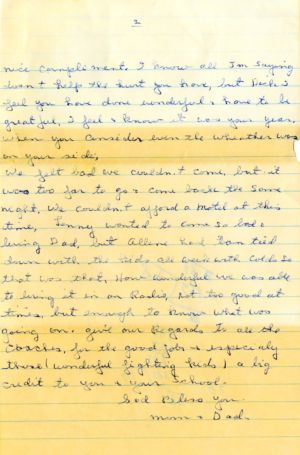 2
nice compliment. I know all Im saying
doesn't help the hurt you have, but Dick I
feel you have done wonderful & have to be
greatful, I feel & know it was your year.
When you consider even the wheather was
on your side,
We felt bad we couldn't come, but it
was too far to go & come back the same
night, We couldn't afford a Motel at this
time, wanted to come so bad &
bring Dad, but Allene had tied
down with the kids all week with colds so
that was that, How wonderful we was able
to bring it in on Radio, not too good at
times, but enough to know what was
going on. Give our Regards to all the
Coaches, for the good job & especialy
those (wonderful fighting kids) a big
credit to you & your School.
God Bless you
Mom & Dad.